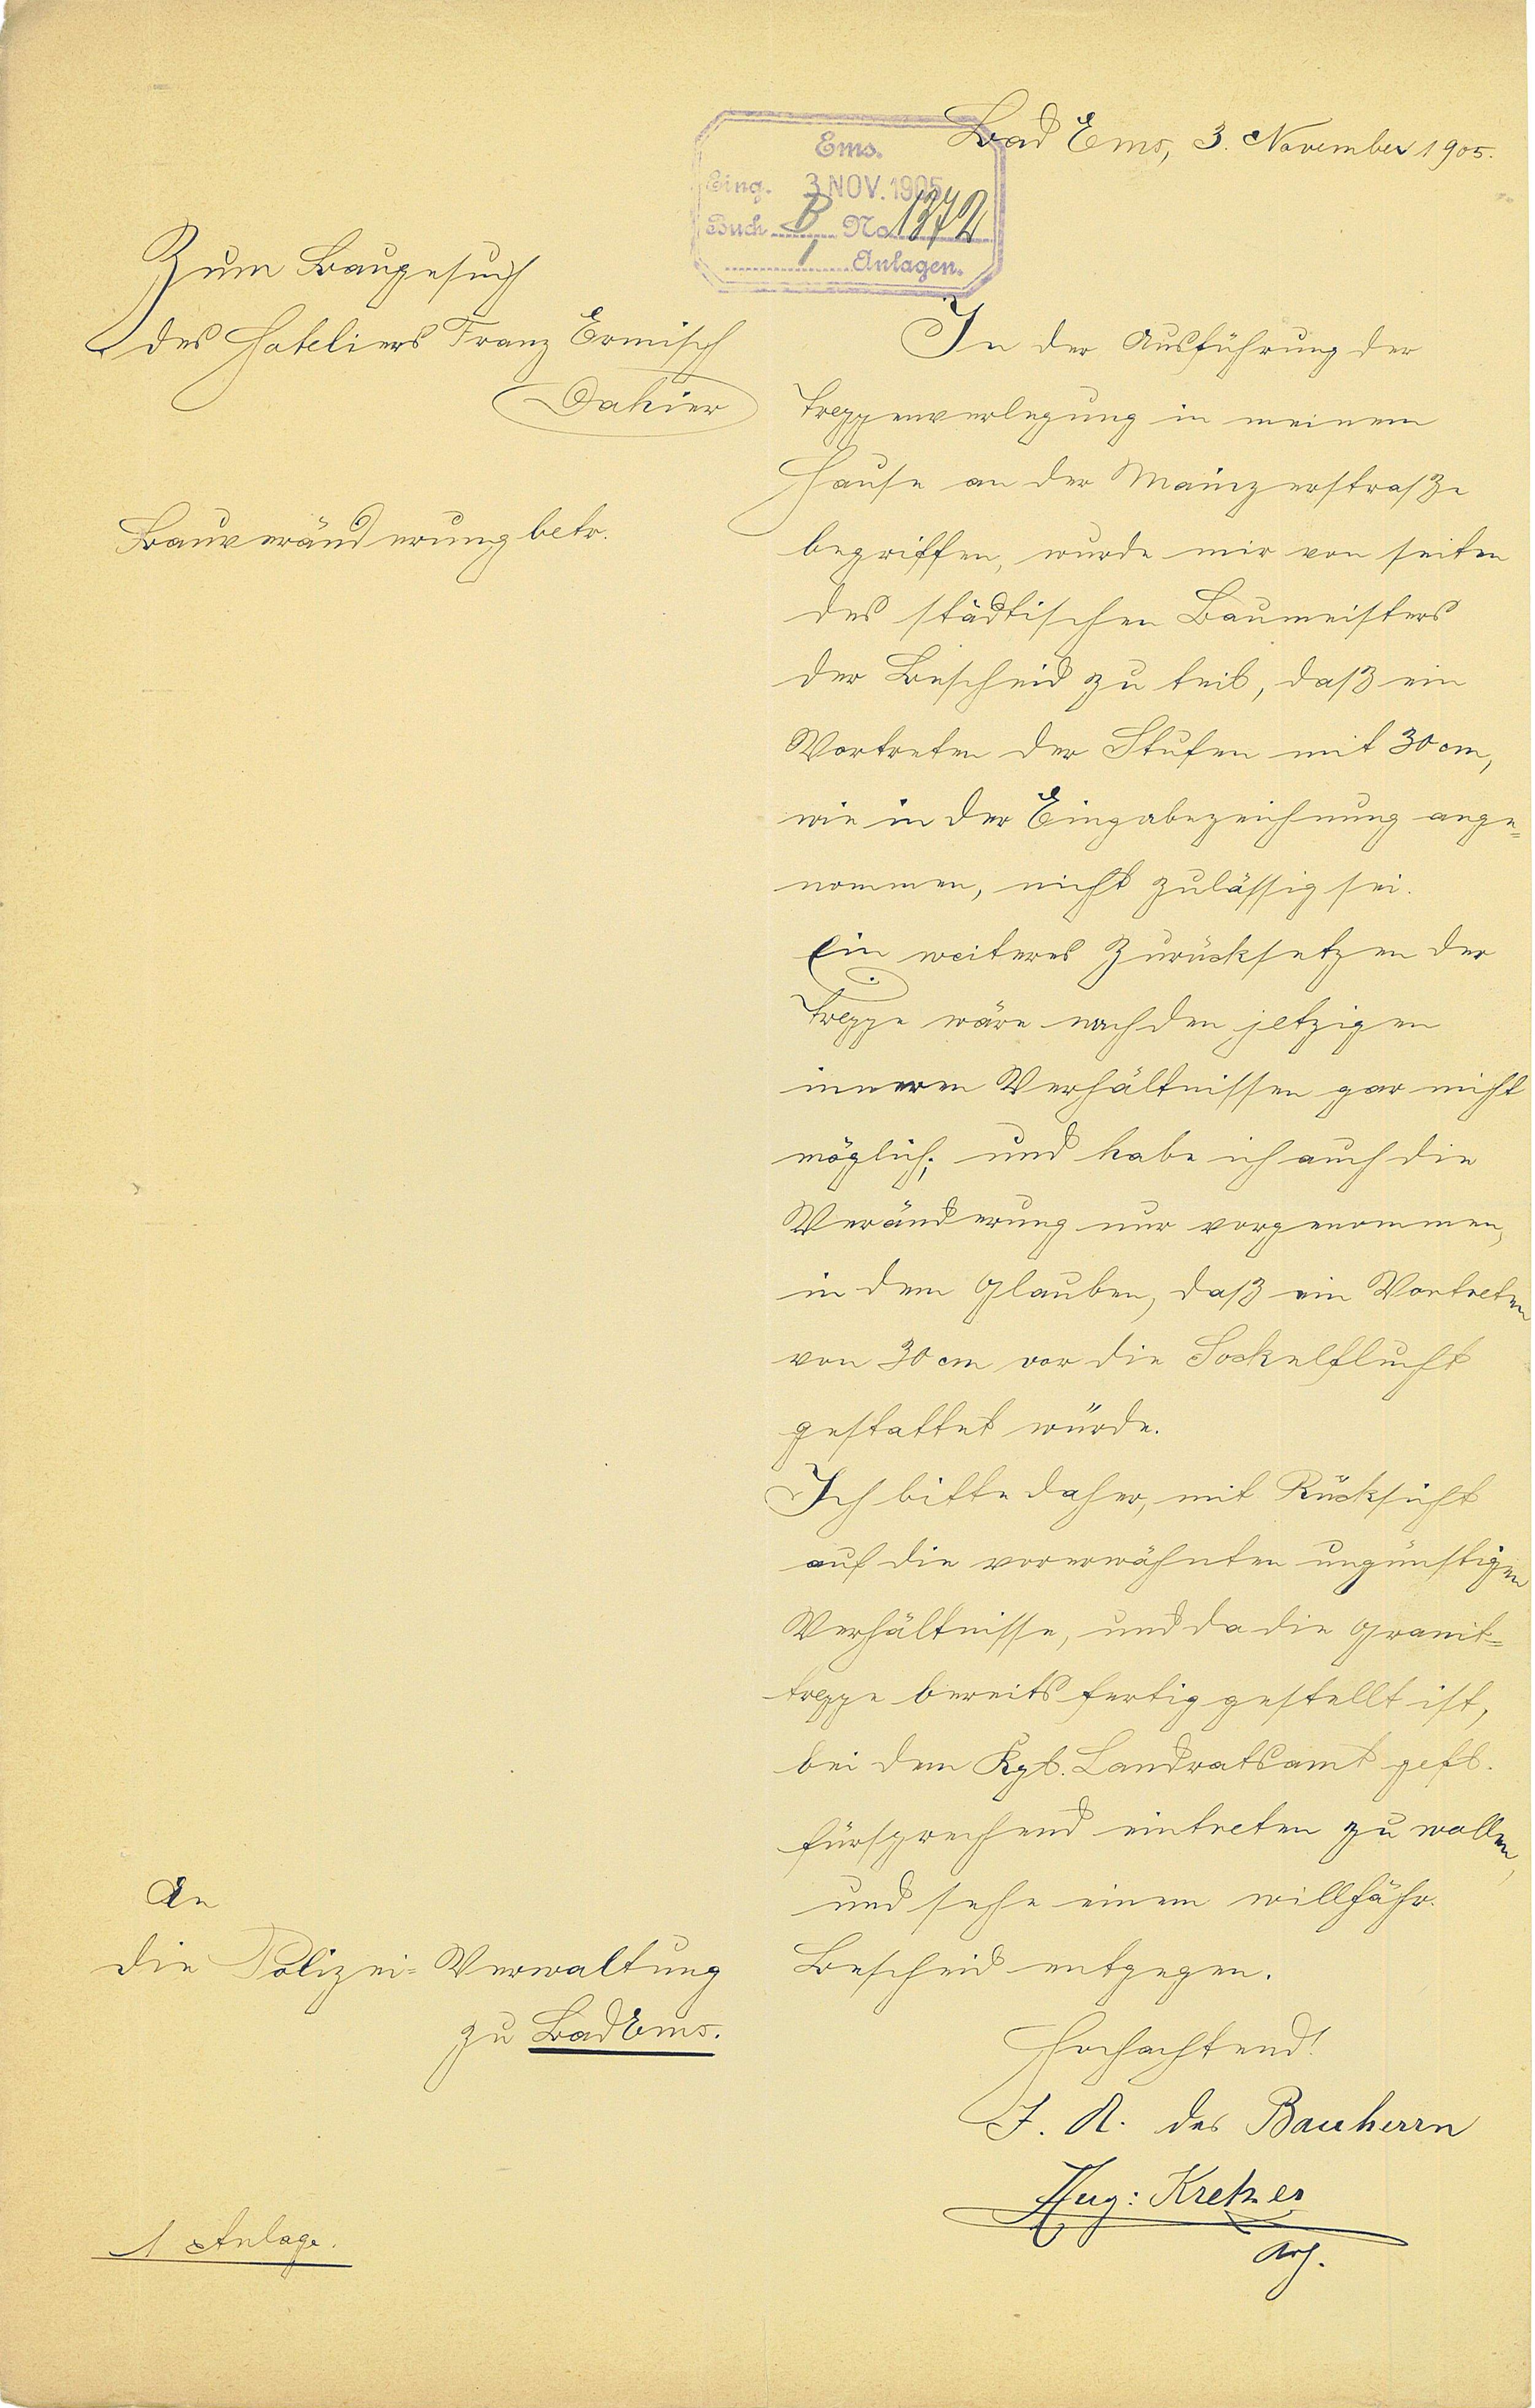 Bad Ems, 3. November 1905.
Ems.
Eing. 3 NOV. 1905
Buch B No 1372
1 Anlagen.
Zum Baugesuch
des Hoteliers Franz Ermisch
Dahier
Bauveränderung betr.
In der Ausführung der
Treppenverlegung in meinem
Hause an der Mainzerstraße
begriffen, wurde mir von seiten
des städtischen Baumeisters
der Bescheid zu teil, daß ein
Vortreten der Stufen mit 30 cm,
wie in der Eingabezeichnung ange=
nommen, nicht zulässig sei.
Ein weiteres Zurücksetzen der
Treppe wäre nach den jetzigen
inneren Verhältnissen gar nicht
möglich; und habe ich auch die
Veränderung nur vorgenommen,
in dem Glauben, daß ein Vortreten
von 30 cm vor die Sockelflucht
gestattet würde.
Ich bitte daher, mit Rücksicht
auf die vorerwähnten ungünstigen
Verhältnisse, und da die Granit=
treppe bereits fertig gestellt ist,
bei dem Kgl. Landratsamt gefl.
fürsprechend eintreten zu wollen,
und sehe einem willfähr.
Bescheid entgegen.
Hochachtend!
I. A. des Bauherrn
Aug: Kretzer
Arch.
An
die Polizei=Verwaltung
zu Bad Ems.
1 Anlage.